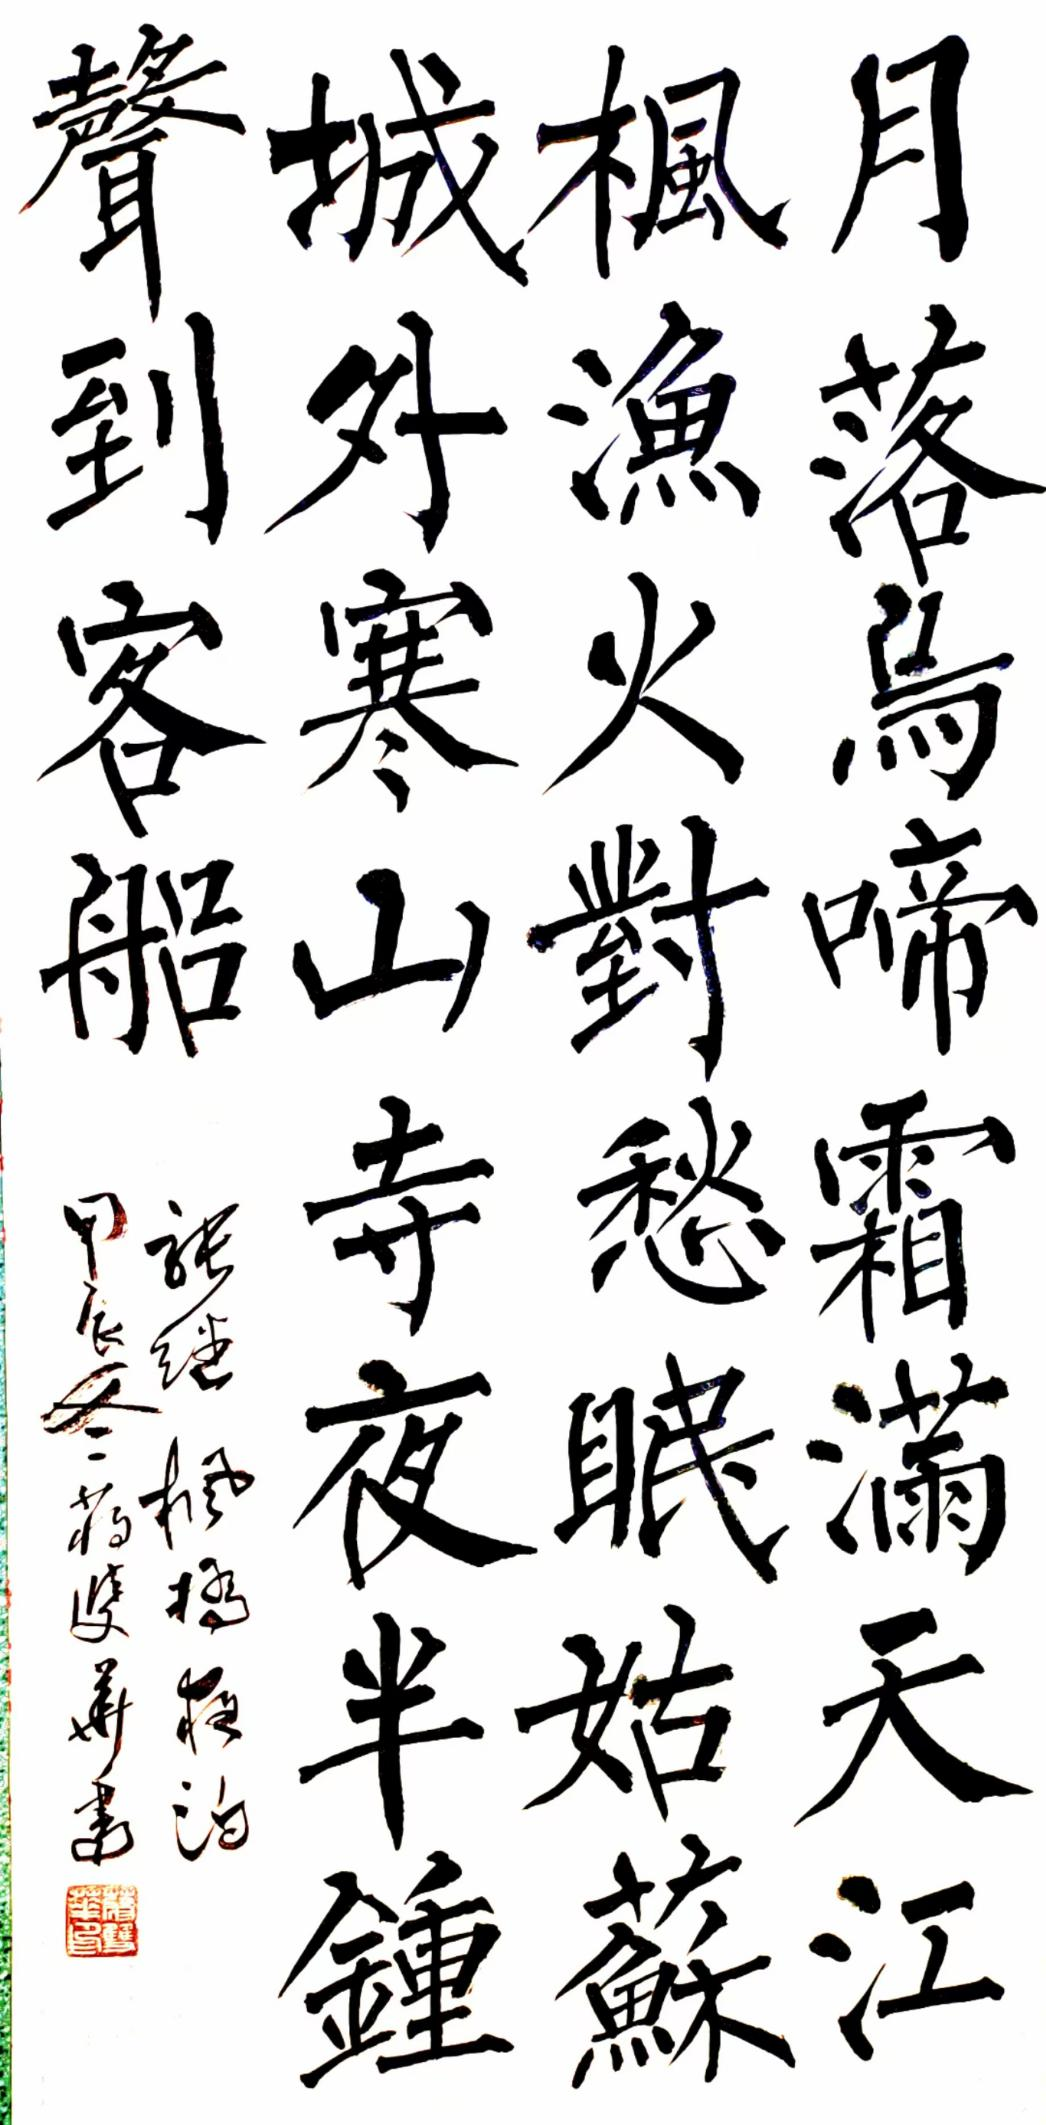 月落烏啼霜滿天江
楓漁火對愁眠姑蘇
城外寒山寺夜半鍾
聲到客船
張继楓橋夜泊
甲辰冬蒋雙華書
蒋雙華印